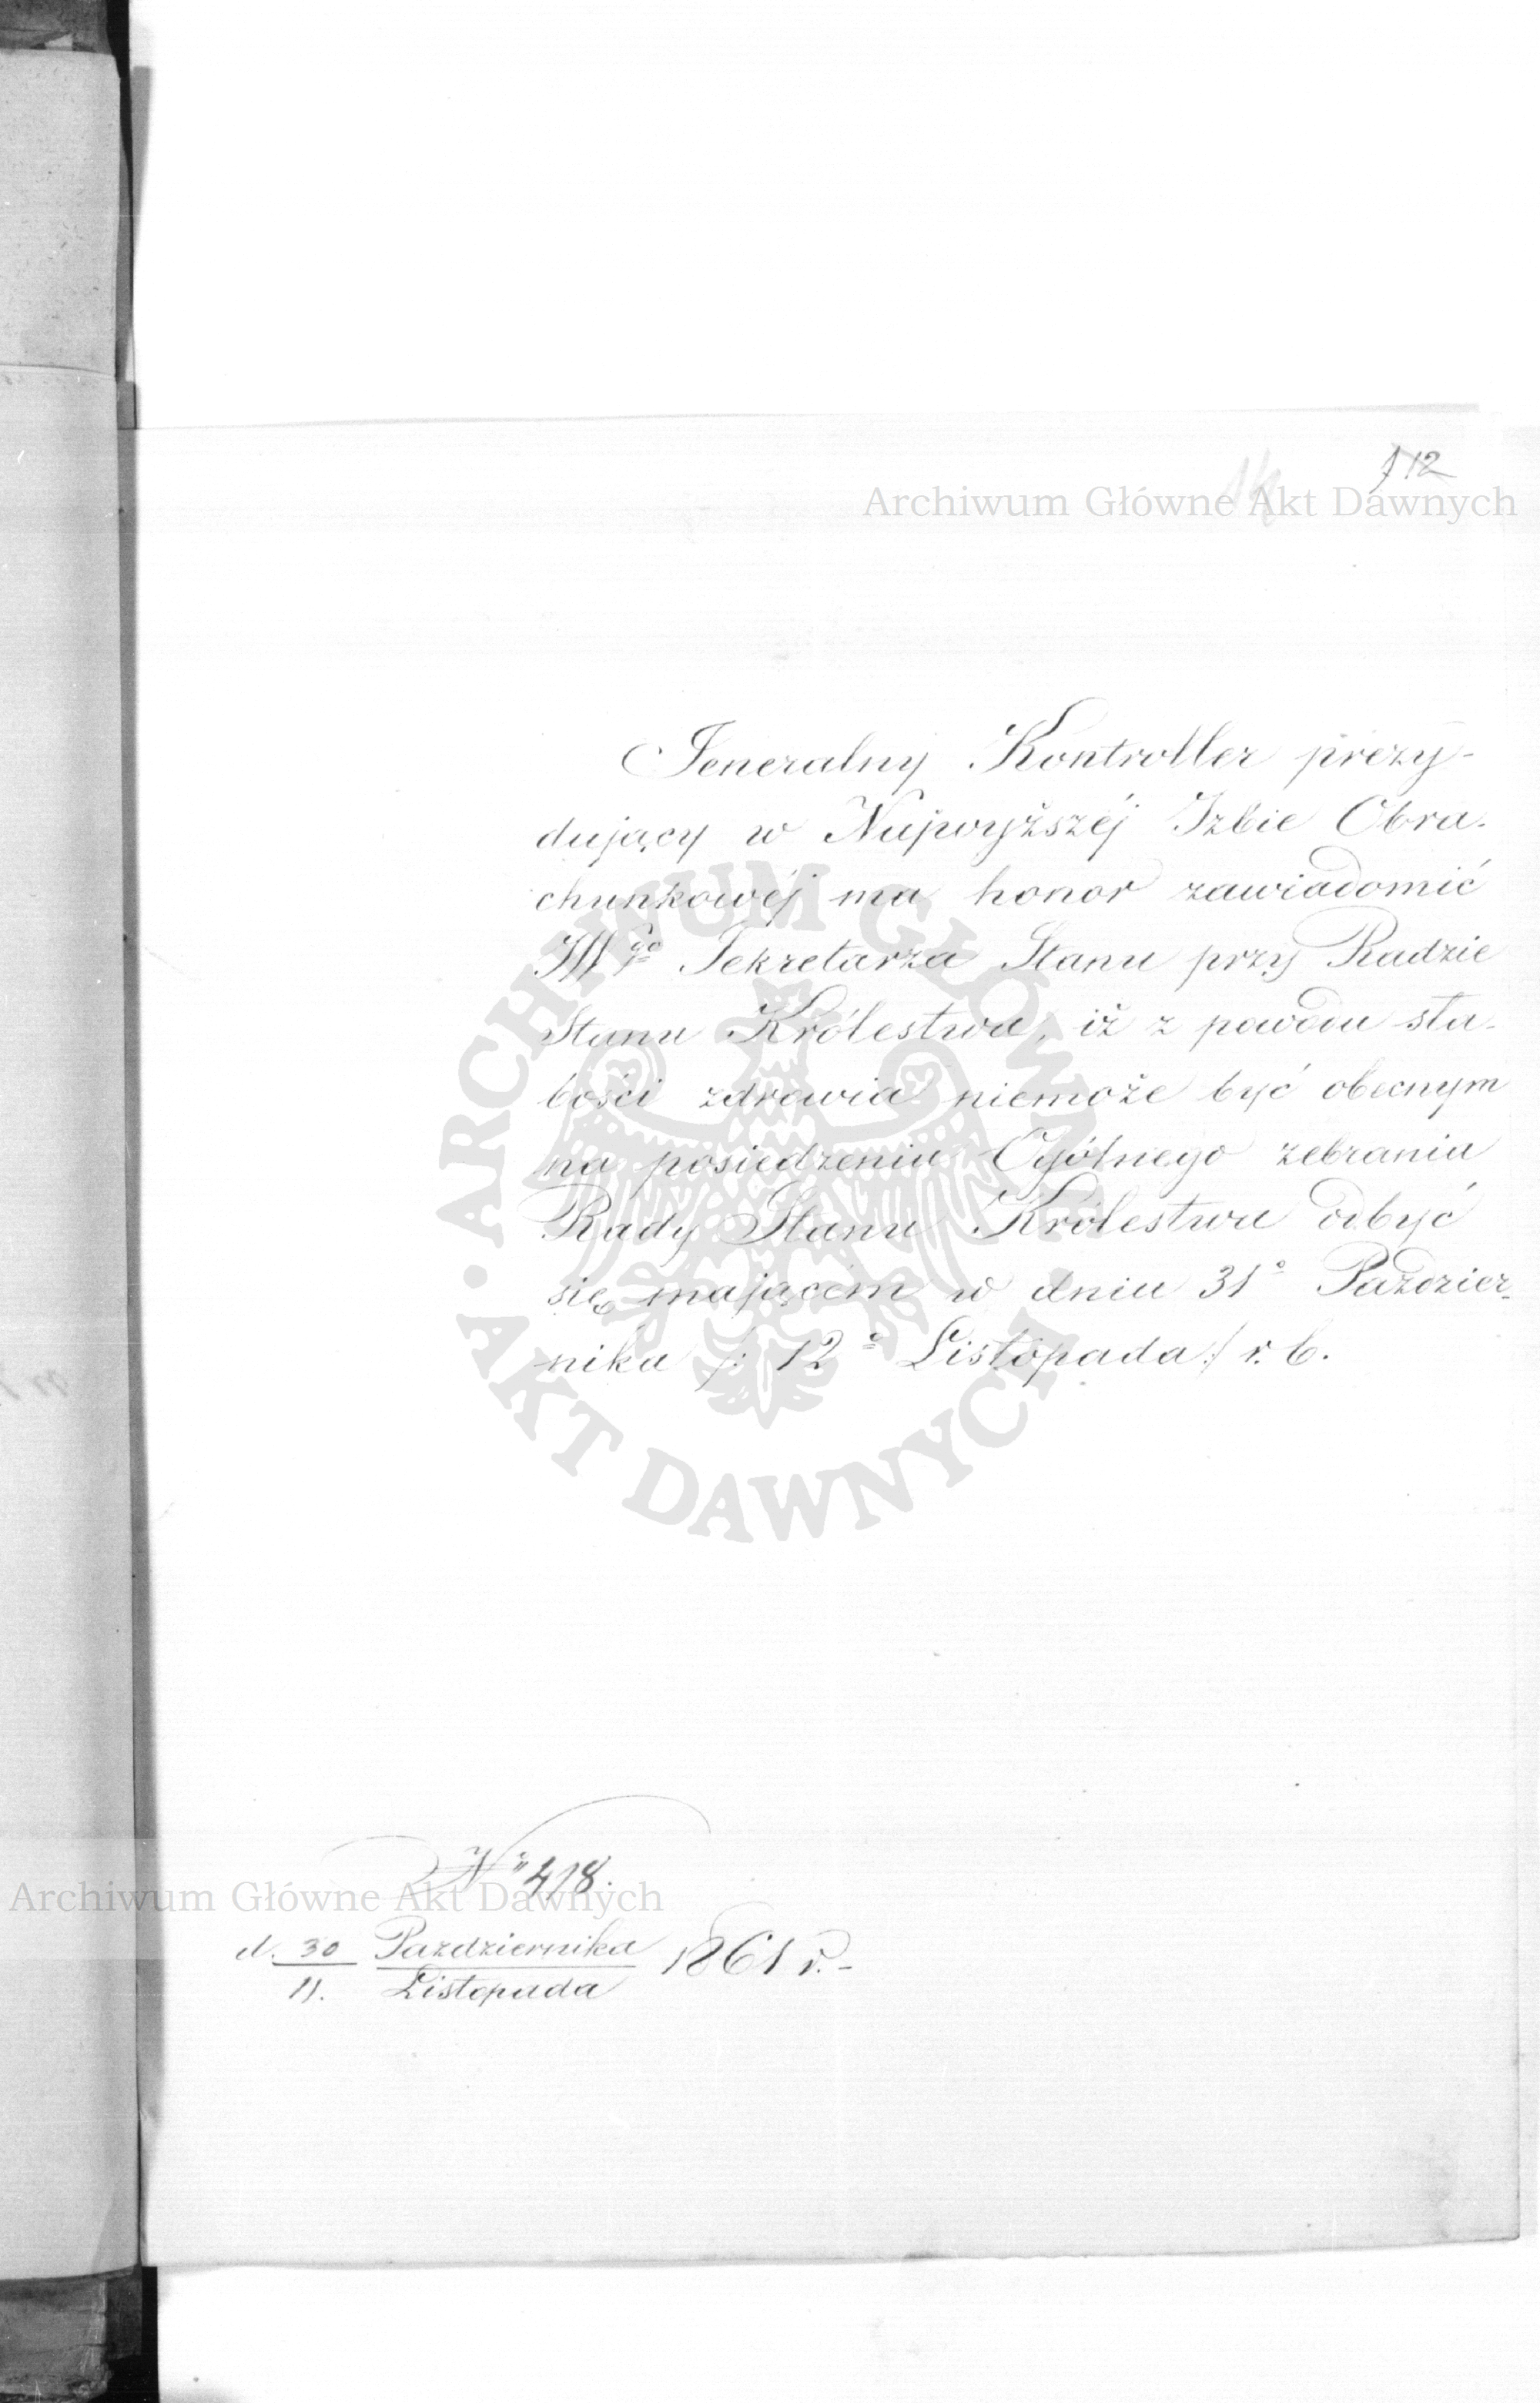 112
Archiwum Główne Akt Dawnych
Jeneralny Kontroller prezy-
dujący w Najwyższéj Izbie Obra-
chunkowéj ma honor zawiadomić
JWgo Sekretarza Stanu przy Radzie
Stanu Królestwa, iż z powodu sła-
bości zdrowia niemoże być obecnym
na posiedzeniu Ogólnego zebrania
Rady Stanu Królestwa odbyć
się mającem w dniu 31º Paździer-
nika /: 12º Listopada :/ r. b.
ARCHIWUM GŁÓWNE • AKT DAWNYCH •
Nº 418.
Archiwum Główne Akt Dawnych
d. 30 Pazdziernika 1861 r.-
11. Listopada